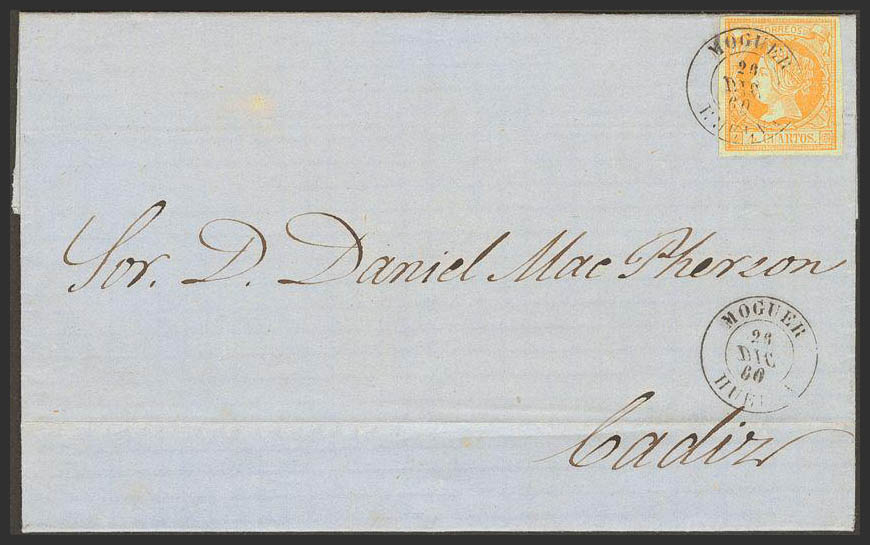 CORREOS
MOGUER
26
DIC
60
CUARTOS.
Sor. D. Daniel Mac Pherson
MOGUER
26
DIC
60
Cadiz